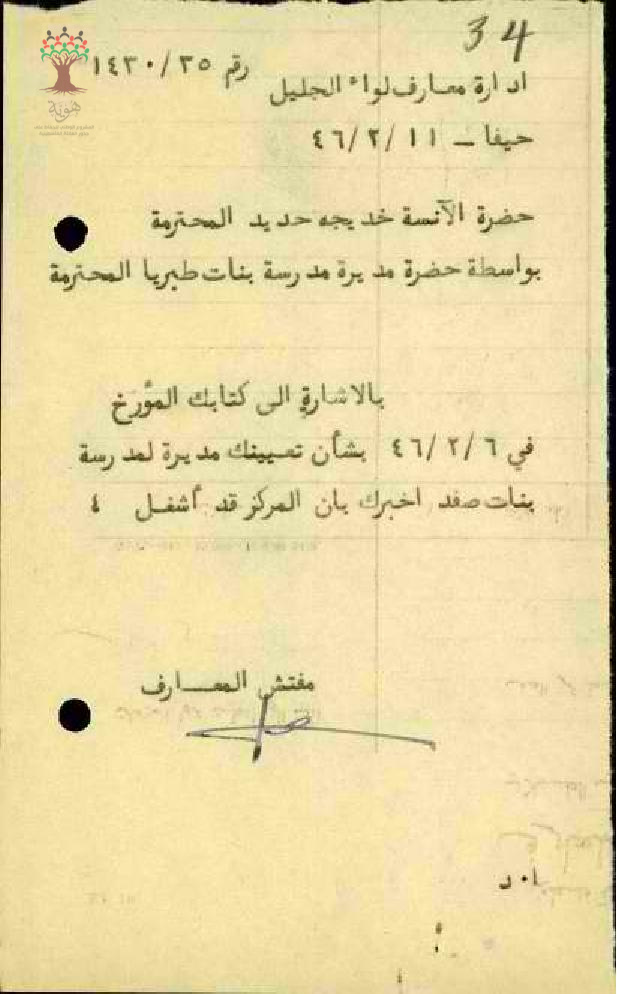 34
رقم ١٤٣٠/٣٥
ادارة معارف لواء الجليل
حيفا ــ ٤٦/٢/١١
حضرة الآنسة خديجه حديد المحترمة
بواسطة حضرة مديرة مدرسة بنات طبريا المحترمة
بالاشارة الى كتابك المؤرخ
في ٤٦/٢/٦ بشأن تعيينك مديرة لمدرسة
بنات صفد اخبرك بان المركز قد أشغل ٤
مفتش المعــارف
ا٠د
هوية